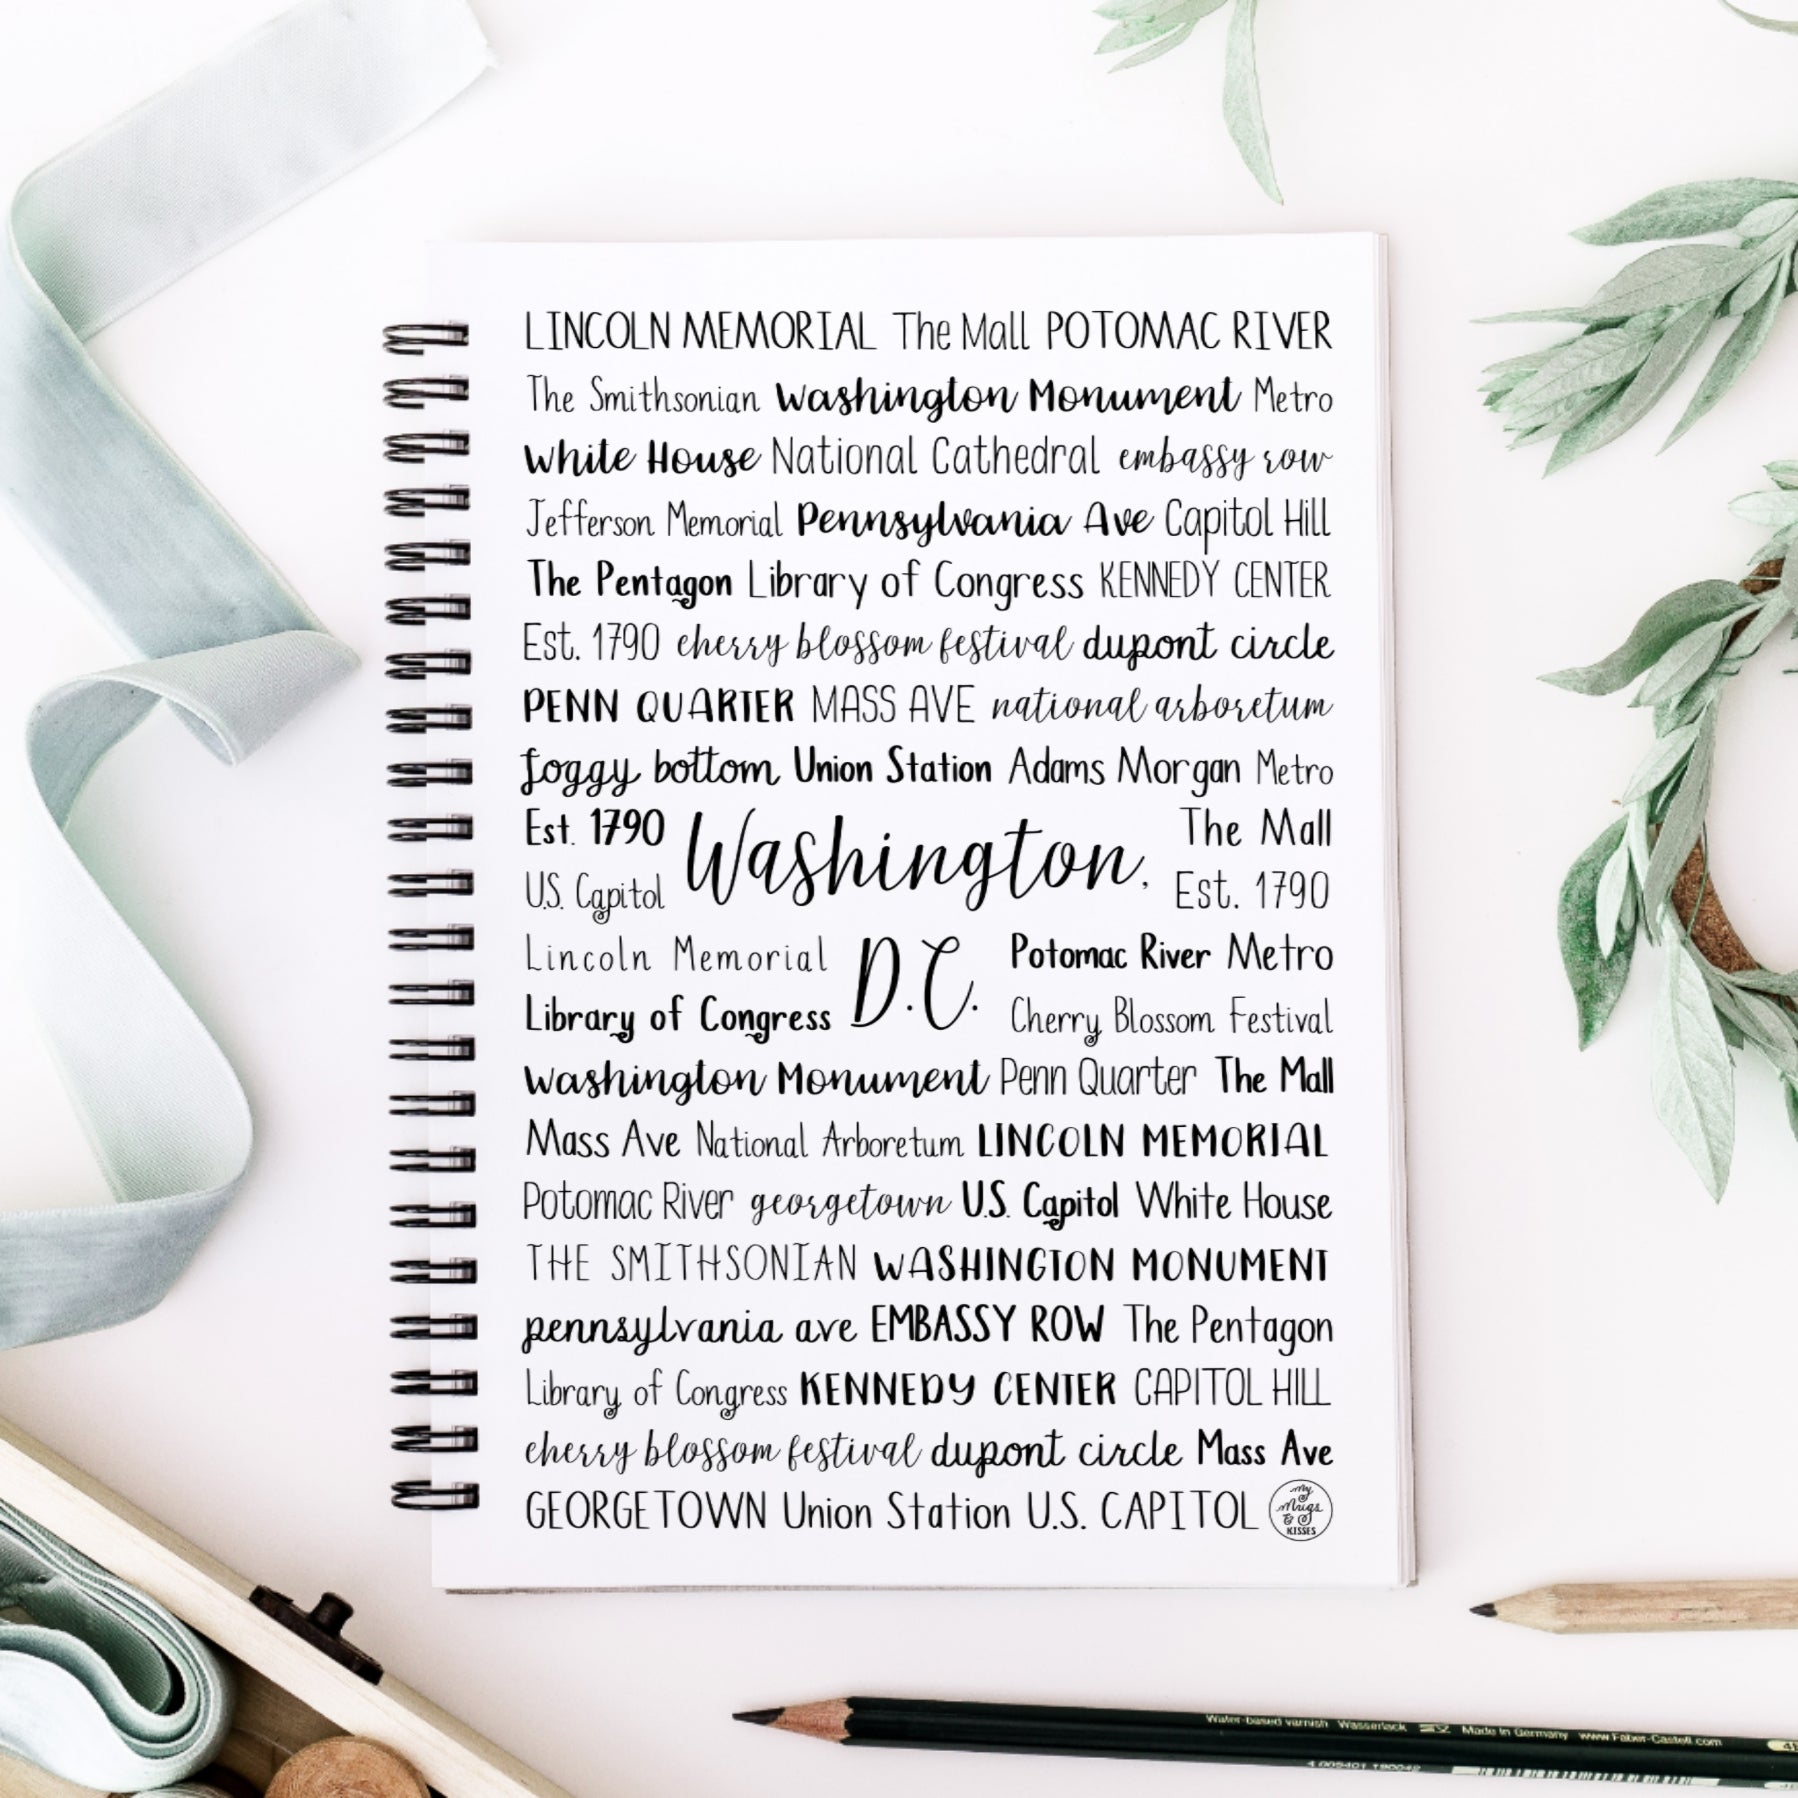 LINCOLN MEMORIAL The Mall POTOMAC RIVER
The Smithsonian Washington Monument Metro
White House National Cathedral embassy row
Jefferson Memorial Pennsylvania Ave Capitol Hill
The Pentagon Library of Congress KENNEDY CENTER
Est. 1790 cherry blossom festival dupont circle
PENN QUARTER MASS AVE national arboretum
foggy bottom Union Station Adams Morgan Metro
Est. 1790 Washington, The Mall
U.S. Capitol Est. 1790
Lincoln Memorial D.C. Potomac River Metro
Library of Congress Cherry Blossom Festival
Washington Monument Penn Quarter The Mall
Mass Ave National Arboretum LINCOLN MEMORIAL
Potomac River georgetown U.S. Capitol White House
THE SMITHSONIAN WASHINGTON MONUMENT
pennsylvania ave EMBASSY ROW The Pentagon
Library of Congress KENNEDY CENTER CAPITOL HILL
cherry blossom festival dupont circle Mass Ave
GEORGETOWN Union Station U.S. CAPITOL
My
Mugs
&
KISSES
Water-based varnish Wasserlack Made in Germany www.Faber-Castell.com
4 005401 190042